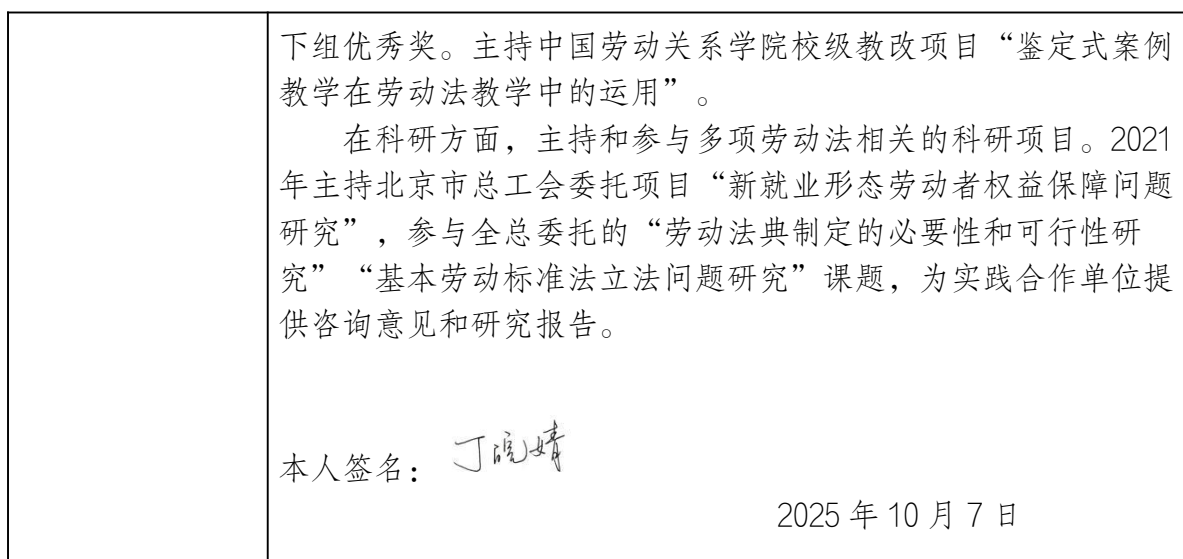 下组优秀奖。主持中国劳动关系学院校级教改项目“鉴定式案例
教学在劳动法教学中的运用”。
在科研方面，主持和参与多项劳动法相关的科研项目。2021
年主持北京市总工会委托项目“新就业形态劳动者权益保障问题
研究”，参与全总委托的“劳动法典制定的必要性和可行性研
究”“基本劳动标准法立法问题研究”课题，为实践合作单位提
供咨询意见和研究报告。
本人签名：丁皖婧
2025 年 10 月 7 日